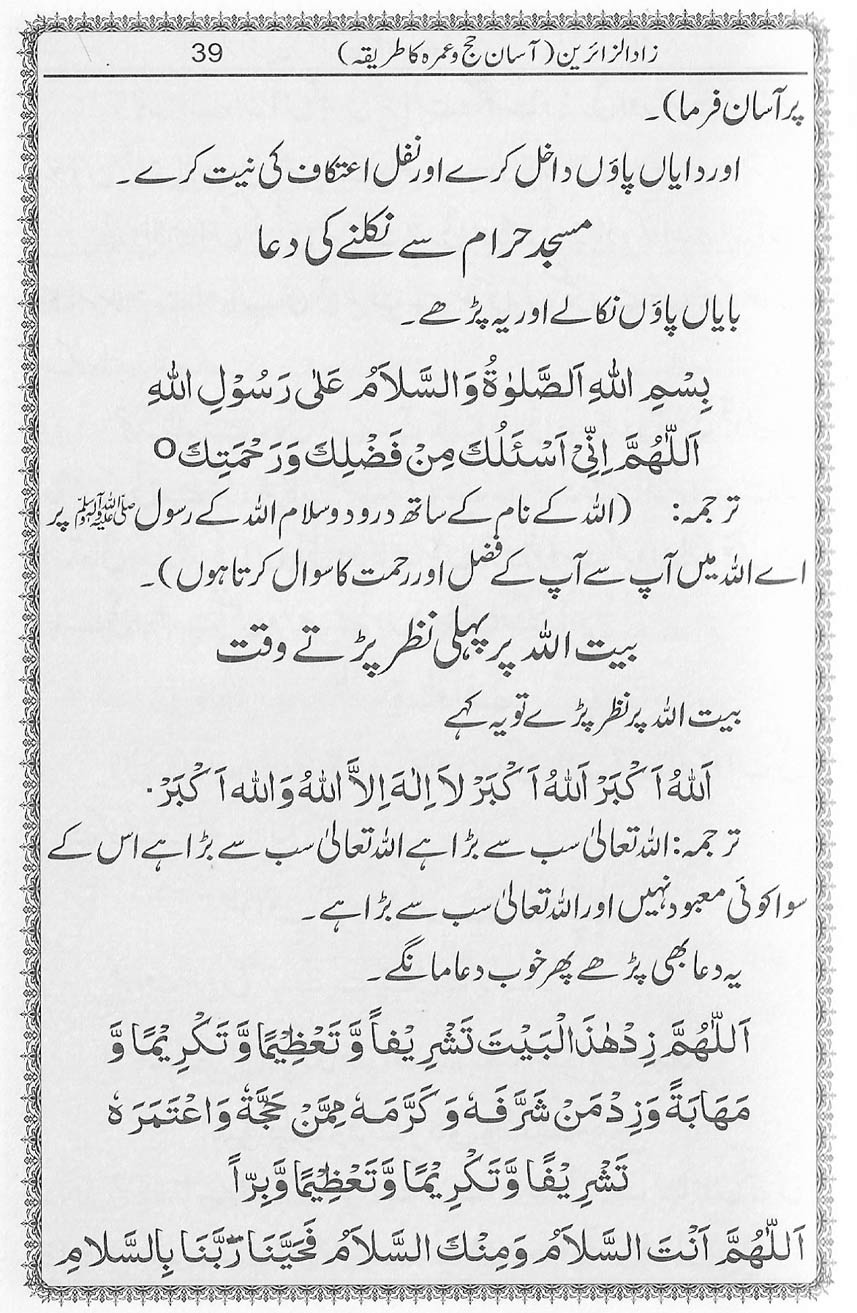 زاد الزائرین (آسان حج و عمرہ کا طریقہ) 39
پر آسان فرما)۔
اور دایاں پاؤں داخل کرے اور نفل اعتکاف کی نیت کرے۔
مسجد حرام سے نکلنے کی دعا
بایاں پاؤں نکالے اور یہ پڑھے۔
بِسْمِ اللهِ اَلصَّلٰوةُ وَالسَّلَامُ عَلٰی رَسُوْلِ اللهِ
اَللّٰهُمَّ اِنِّیْ اَسْئَلُكَ مِنْ فَضْلِكَ وَرَحْمَتِكَ O
ترجمہ: (اللہ کے نام کے ساتھ درود و سلام اللہ کے رسول ﷺ پر
اے اللہ میں آپ سے آپ کے فضل اور رحمت کا سوال کرتا ہوں)۔
بیت اللہ پر پہلی نظر پڑتے وقت
بیت اللہ پر نظر پڑے تو یہ کہے
اَللهُ اَكْبَرْ اَللهُ اَكْبَرْ لَا اِلٰهَ اِلاَّ اللهُ وَالله اَكْبَرْ۔
ترجمہ: اللہ تعالیٰ سب سے بڑا ہے اللہ تعالیٰ سب سے بڑا ہے اس کے
سوا کوئی معبود نہیں اور اللہ تعالیٰ سب سے بڑا ہے۔
یہ دعا بھی پڑھے پھر خوب دعا مانگے۔
اَللّٰهُمَّ زِدْ هٰذَا الْبَيْتَ تَشْرِيْفاً وَّتَعْظِيْمًا وَّتَكْرِيْمًا وَّ
مَهَابَةً وَزِدْ مَنْ شَرَّفَهٗ وَكَرَّمَهٗ مِمَّنْ حَجَّهٗ وَاعْتَمَرَهٗ
تَشْرِيْفًا وَّتَكْرِيْمًا وَّتَعْظِيْمًا وَّبِرّاً
اَللّٰهُمَّ اَنْتَ السَّلَامُ وَمِنْكَ السَّلَامُ فَحَيِّنَا رَبَّنَا بِالسَّلَامِ